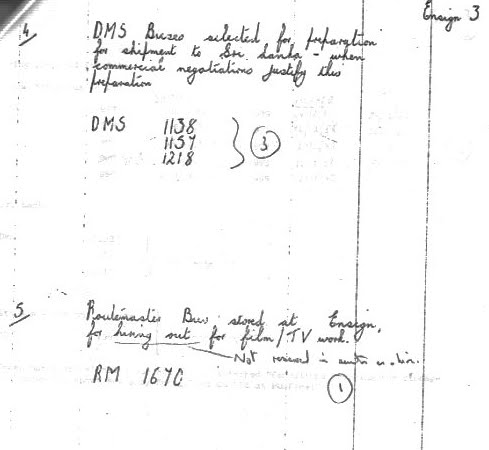 Ensign 3
4/ DMS Buses selected for preparation
for shipment to Sri Lanka - when
commercial negotiations justify this
preparation
DMS 1138
1157
1218
3
5/ Routemaster Bus stored at Ensign,
for hiring out for film/TV work.
Not in
RM 1670
1